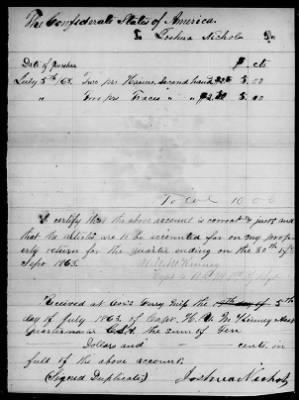 The Confederate States of America.
To Joshua Nichols Dr
Date of Purchase $ cts
July 5th 63. Two prs Hames, Second hand 5.00
" Two prs Traces " " 5.00
Total 10.00
I certify that the above account is correct & just, and
that the articles are to be accounted for on my prop
erty return for the quarter ending on the 30th of
Sept 1863.
Kinney
Received at the 5th
day of July 1863, of Capt. McKinney Asst
Quartermaster C.S.A. the sum of Ten
Dollars and cents, in
full of the above account.
(Signed Duplicates) Joshua Nichols